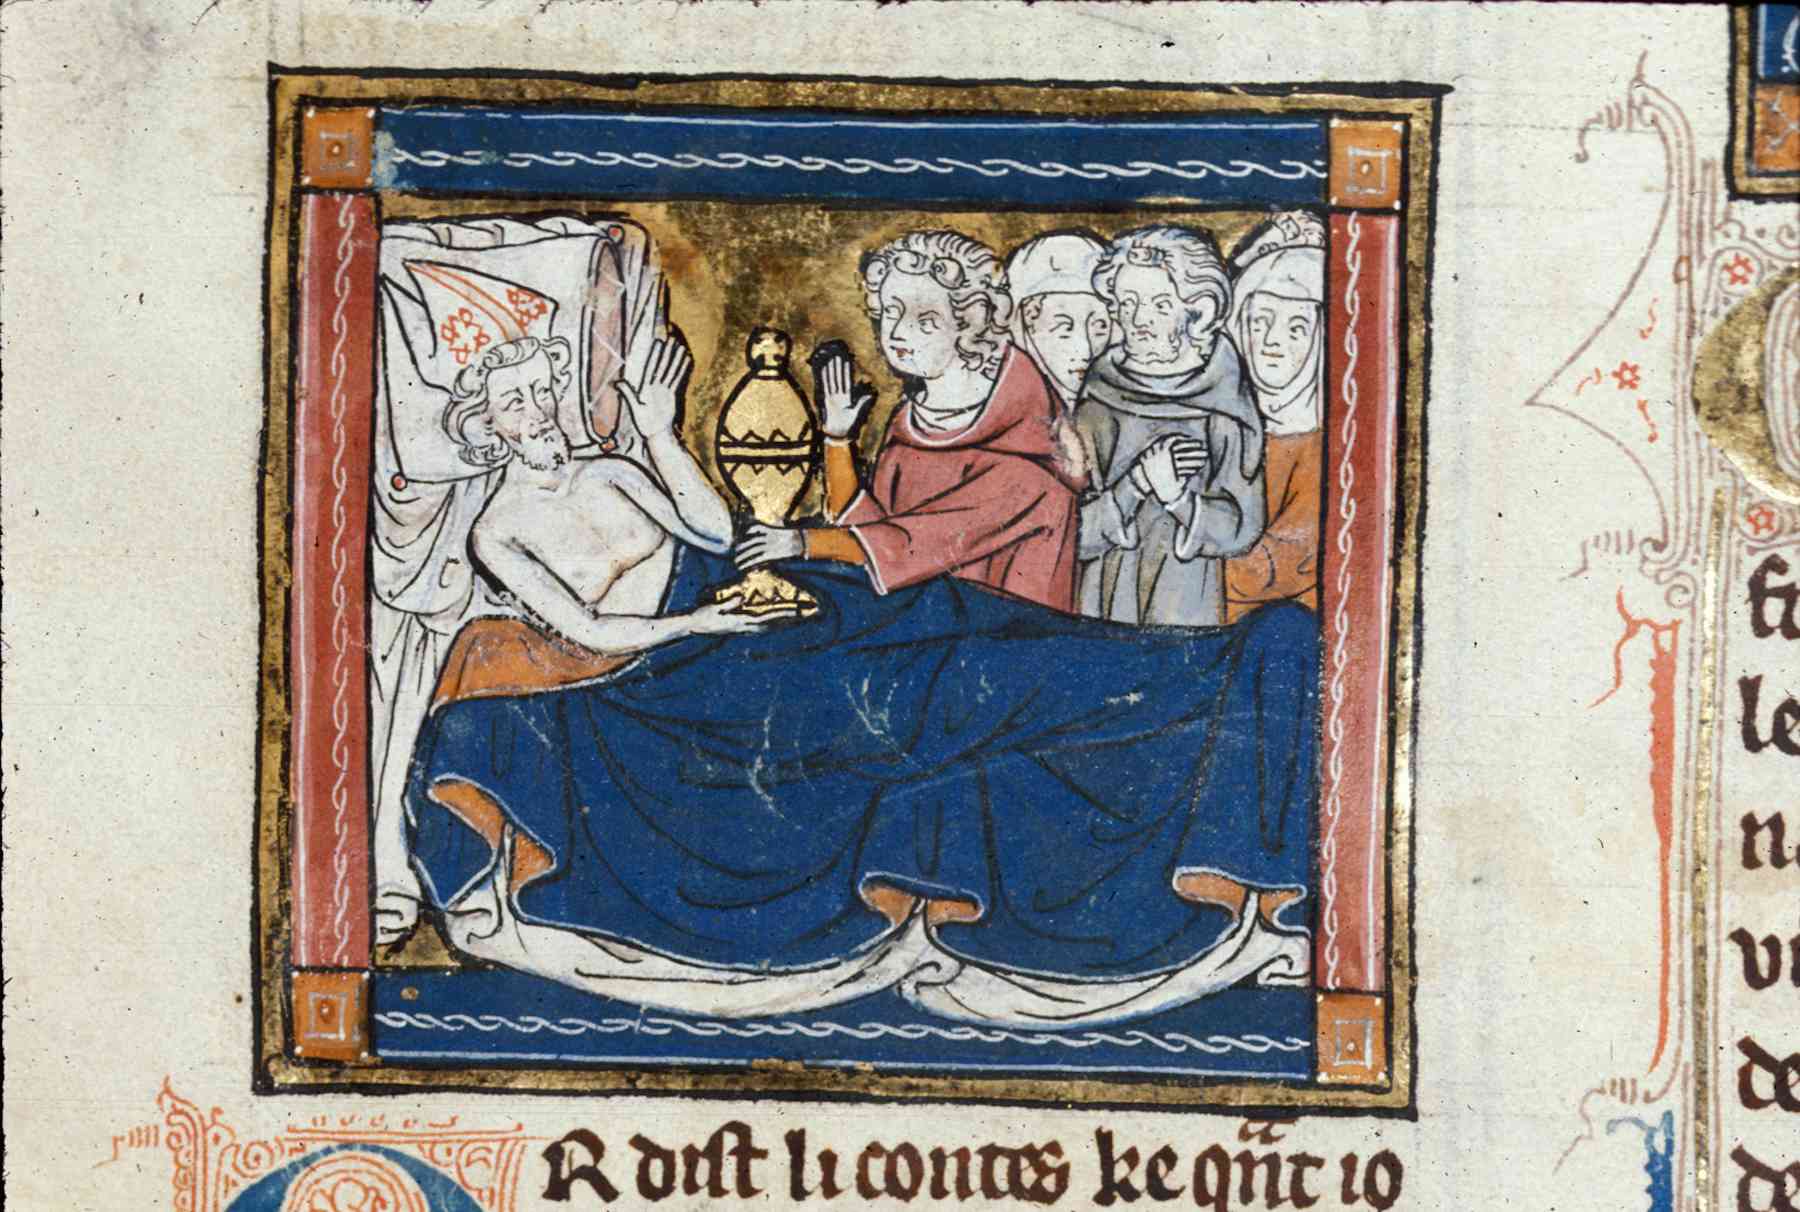 R dist li contes ke qnt io
fu
le
n
vi
de
de